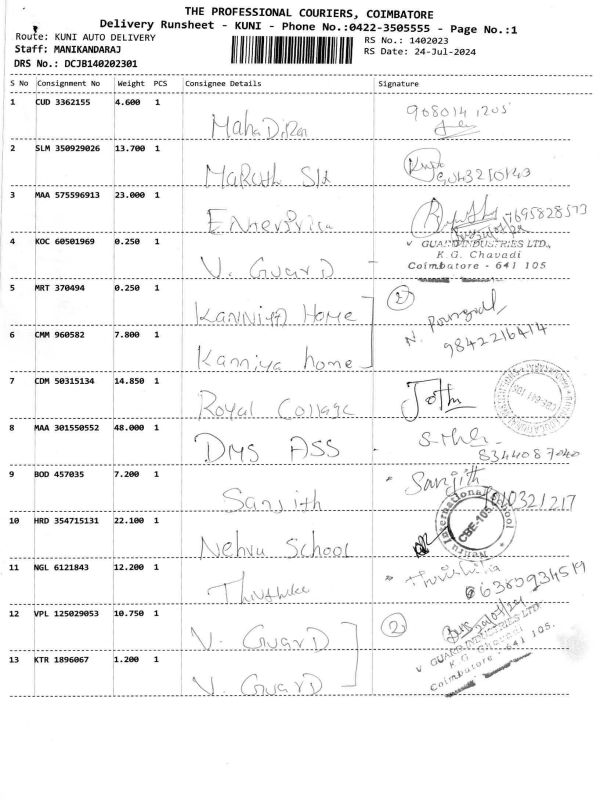 THE PROFESSIONAL COURIERS, COIMBATORE
Delivery Runsheet - KUNI - Phone No.:0422-3505555 - Page No.:1
Route: KUNI AUTO DELIVERY
RS No.: 1402023
Staff: MANIKANDARAJ
RS Date: 24-Jul-2024
DRS No.: DCJB140202301
S No Consignment No Weight PCS Consignee Details Signature
1 CUD 3362155 4.600 1
2 SLM 350929026 13.700 1
9043210143
3 MAA 575596913 23.000 1
7695828573
4 KOC 60501969 0.250 1 V. Guard
V GUARD INDUSTRIES LTD.,
K.G. Chavadi
Coimbatore - 641 105
5 MRT 370494 0.250 1 Kanniya Home
2
6 CMM 960582 7.800 1 Kanniya home
9842216414
7 CDM 50315134 14.850 1 Royal College
Jothi
8 MAA 301550552 48.000 1 DMS ASS
8344087040
9 BOD 457035 7.200 1 Sanjith
Sanjith
10 HRD 354715131 22.100 1 Nehru School
Nehru International School
CBE-105
11 NGL 6121843 12.200 1
12 VPL 125029053 10.750 1 V. Guard
2
13 KTR 1896067 1.200 1 V. Guard
V GUARD INDUSTRIES LTD.
K.G. Chavadi
Coimbatore - 641 105.